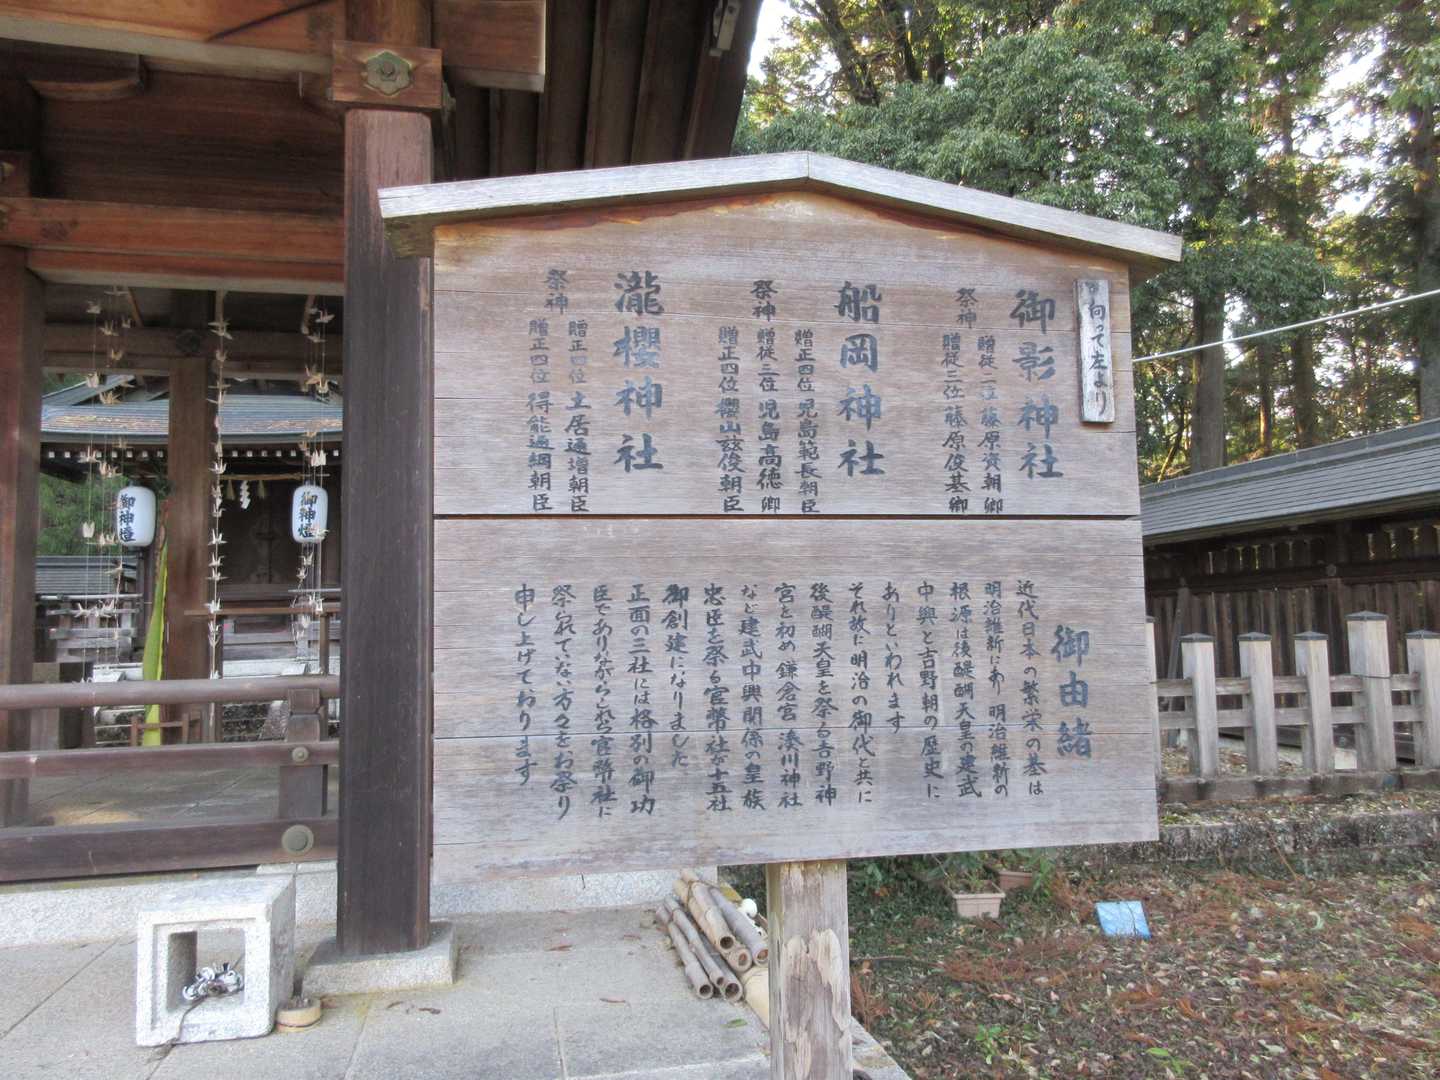 向って左より
御影神社
祭神
贈従二位 藤原資朝卿
贈従三位 藤原俊基卿
船岡神社
祭神
贈正四位 児島範長朝臣
贈従三位 児島高徳卿
贈正四位 櫻山玆俊朝臣
瀧櫻神社
祭神
贈正四位 土居通増朝臣
贈正四位 得能通綱朝臣
御由緒
近代日本の繁栄の基は
明治維新にあり 明治維新の
根源は後醍醐天皇の建武
中興と吉野朝の歴史に
ありといわれます
それ故に明治の御代と共に
後醍醐天皇を祭る吉野神
宮を初め 鎌倉宮 湊川神社
など建武中興関係の皇族
忠臣を祭る官幣社が十五社
御創建になりました
正面の三社には格別の御功
臣でありながらこれら官幣社に
祭られていない方々をお祭り
申し上げております
御神燈
御神燈